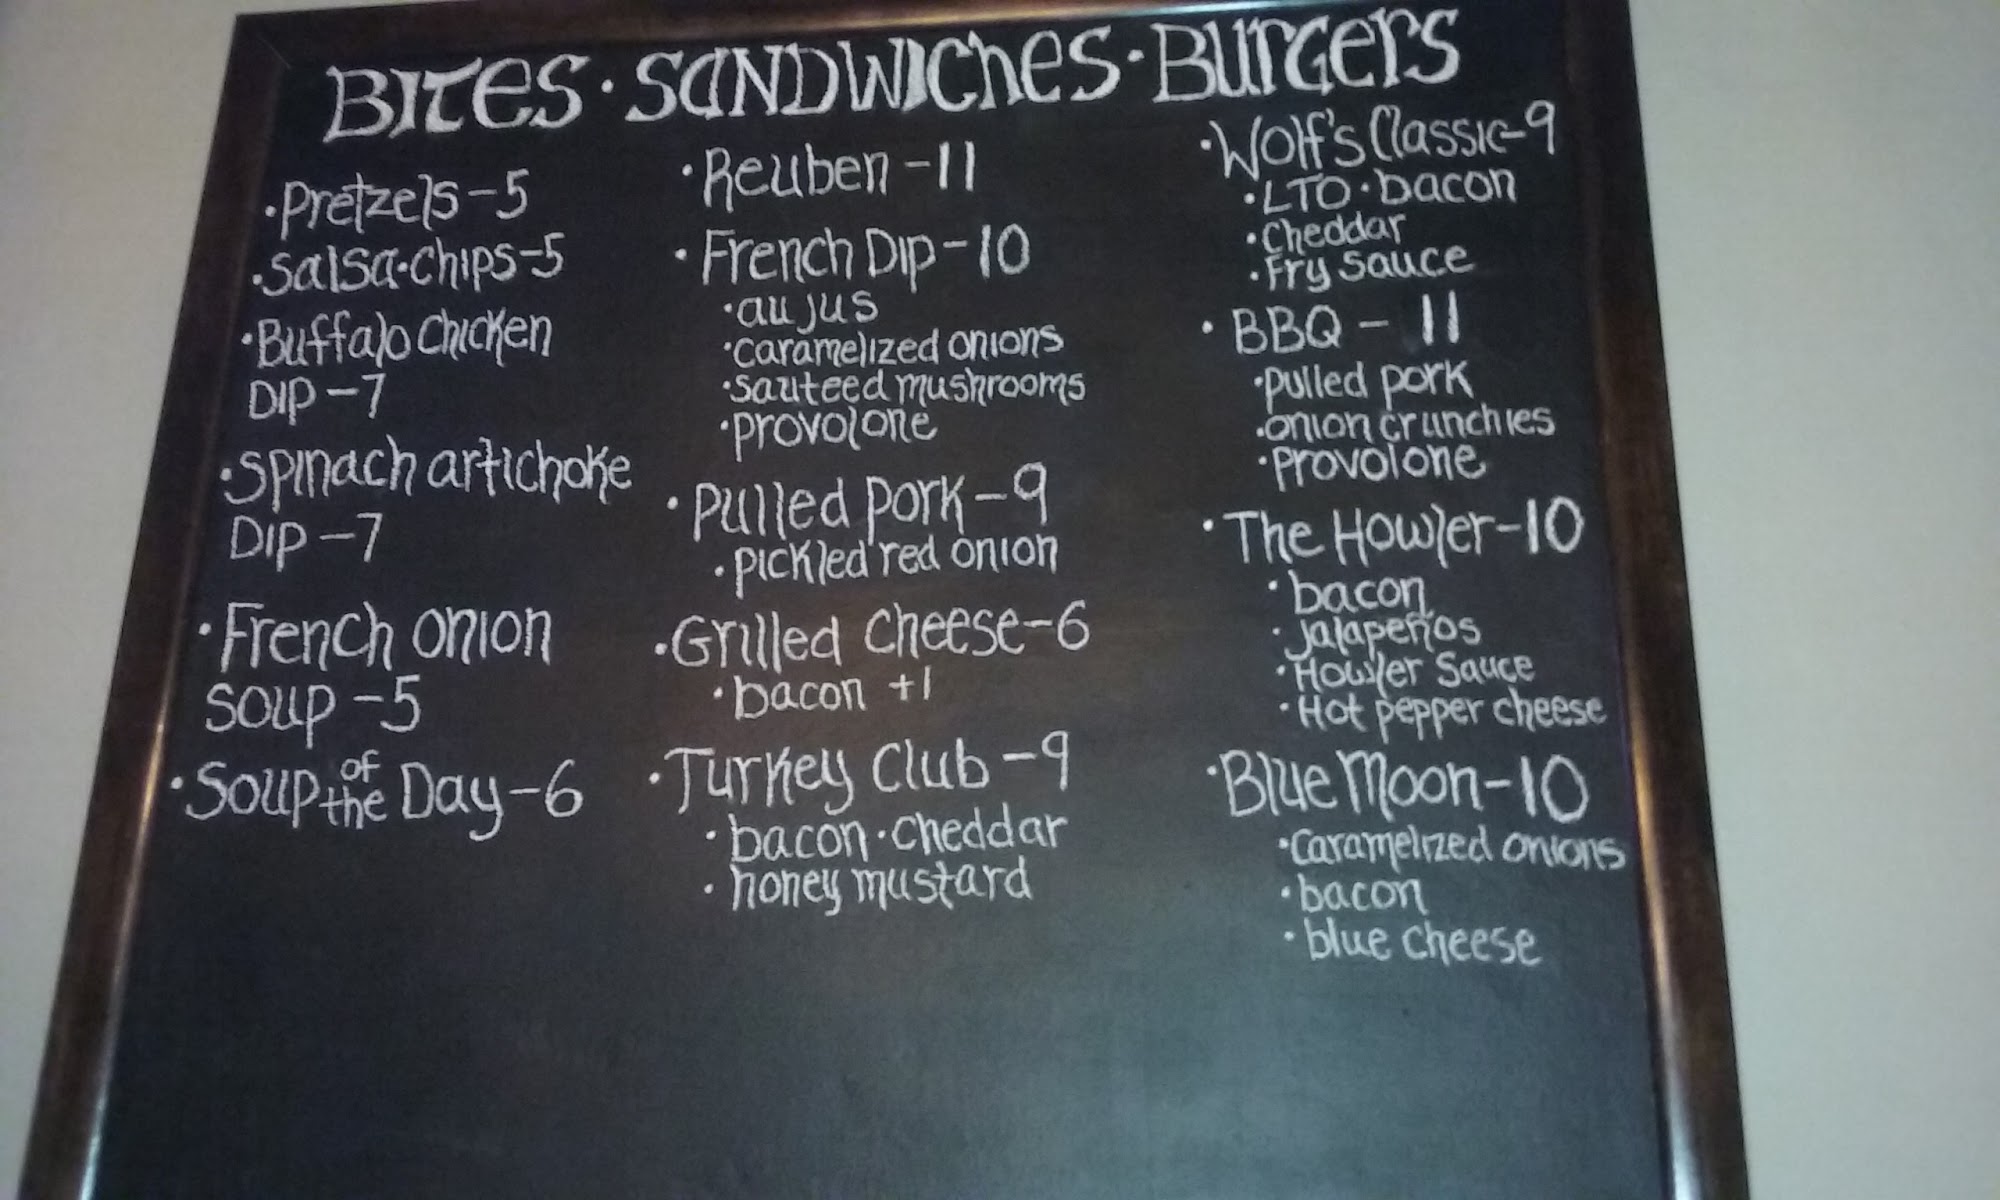 Bites · Sandwiches · Burgers
· Pretzels - 5
· Salsa · chips - 5
· Buffalo Chicken
Dip - 7
· Spinach artichoke
Dip - 7
· French onion
soup - 5
· Soup of the Day - 6
· Reuben - 11
· French Dip - 10
· au jus
· caramelized onions
· sauteed mushrooms
· provolone
· Pulled pork - 9
· pickled red onion
· Grilled Cheese - 6
· bacon +1
· Turkey Club - 9
· bacon · cheddar
· honey mustard
· Wolf's Classic - 9
· LTO · bacon
· Cheddar
· Fry Sauce
· BBQ - 11
· pulled pork
· onion crunchies
· provolone
· The Howler - 10
· bacon
· jalapeños
· Howler Sauce
· Hot pepper cheese
· Blue Moon - 10
· Caramelized onions
· bacon
· blue cheese